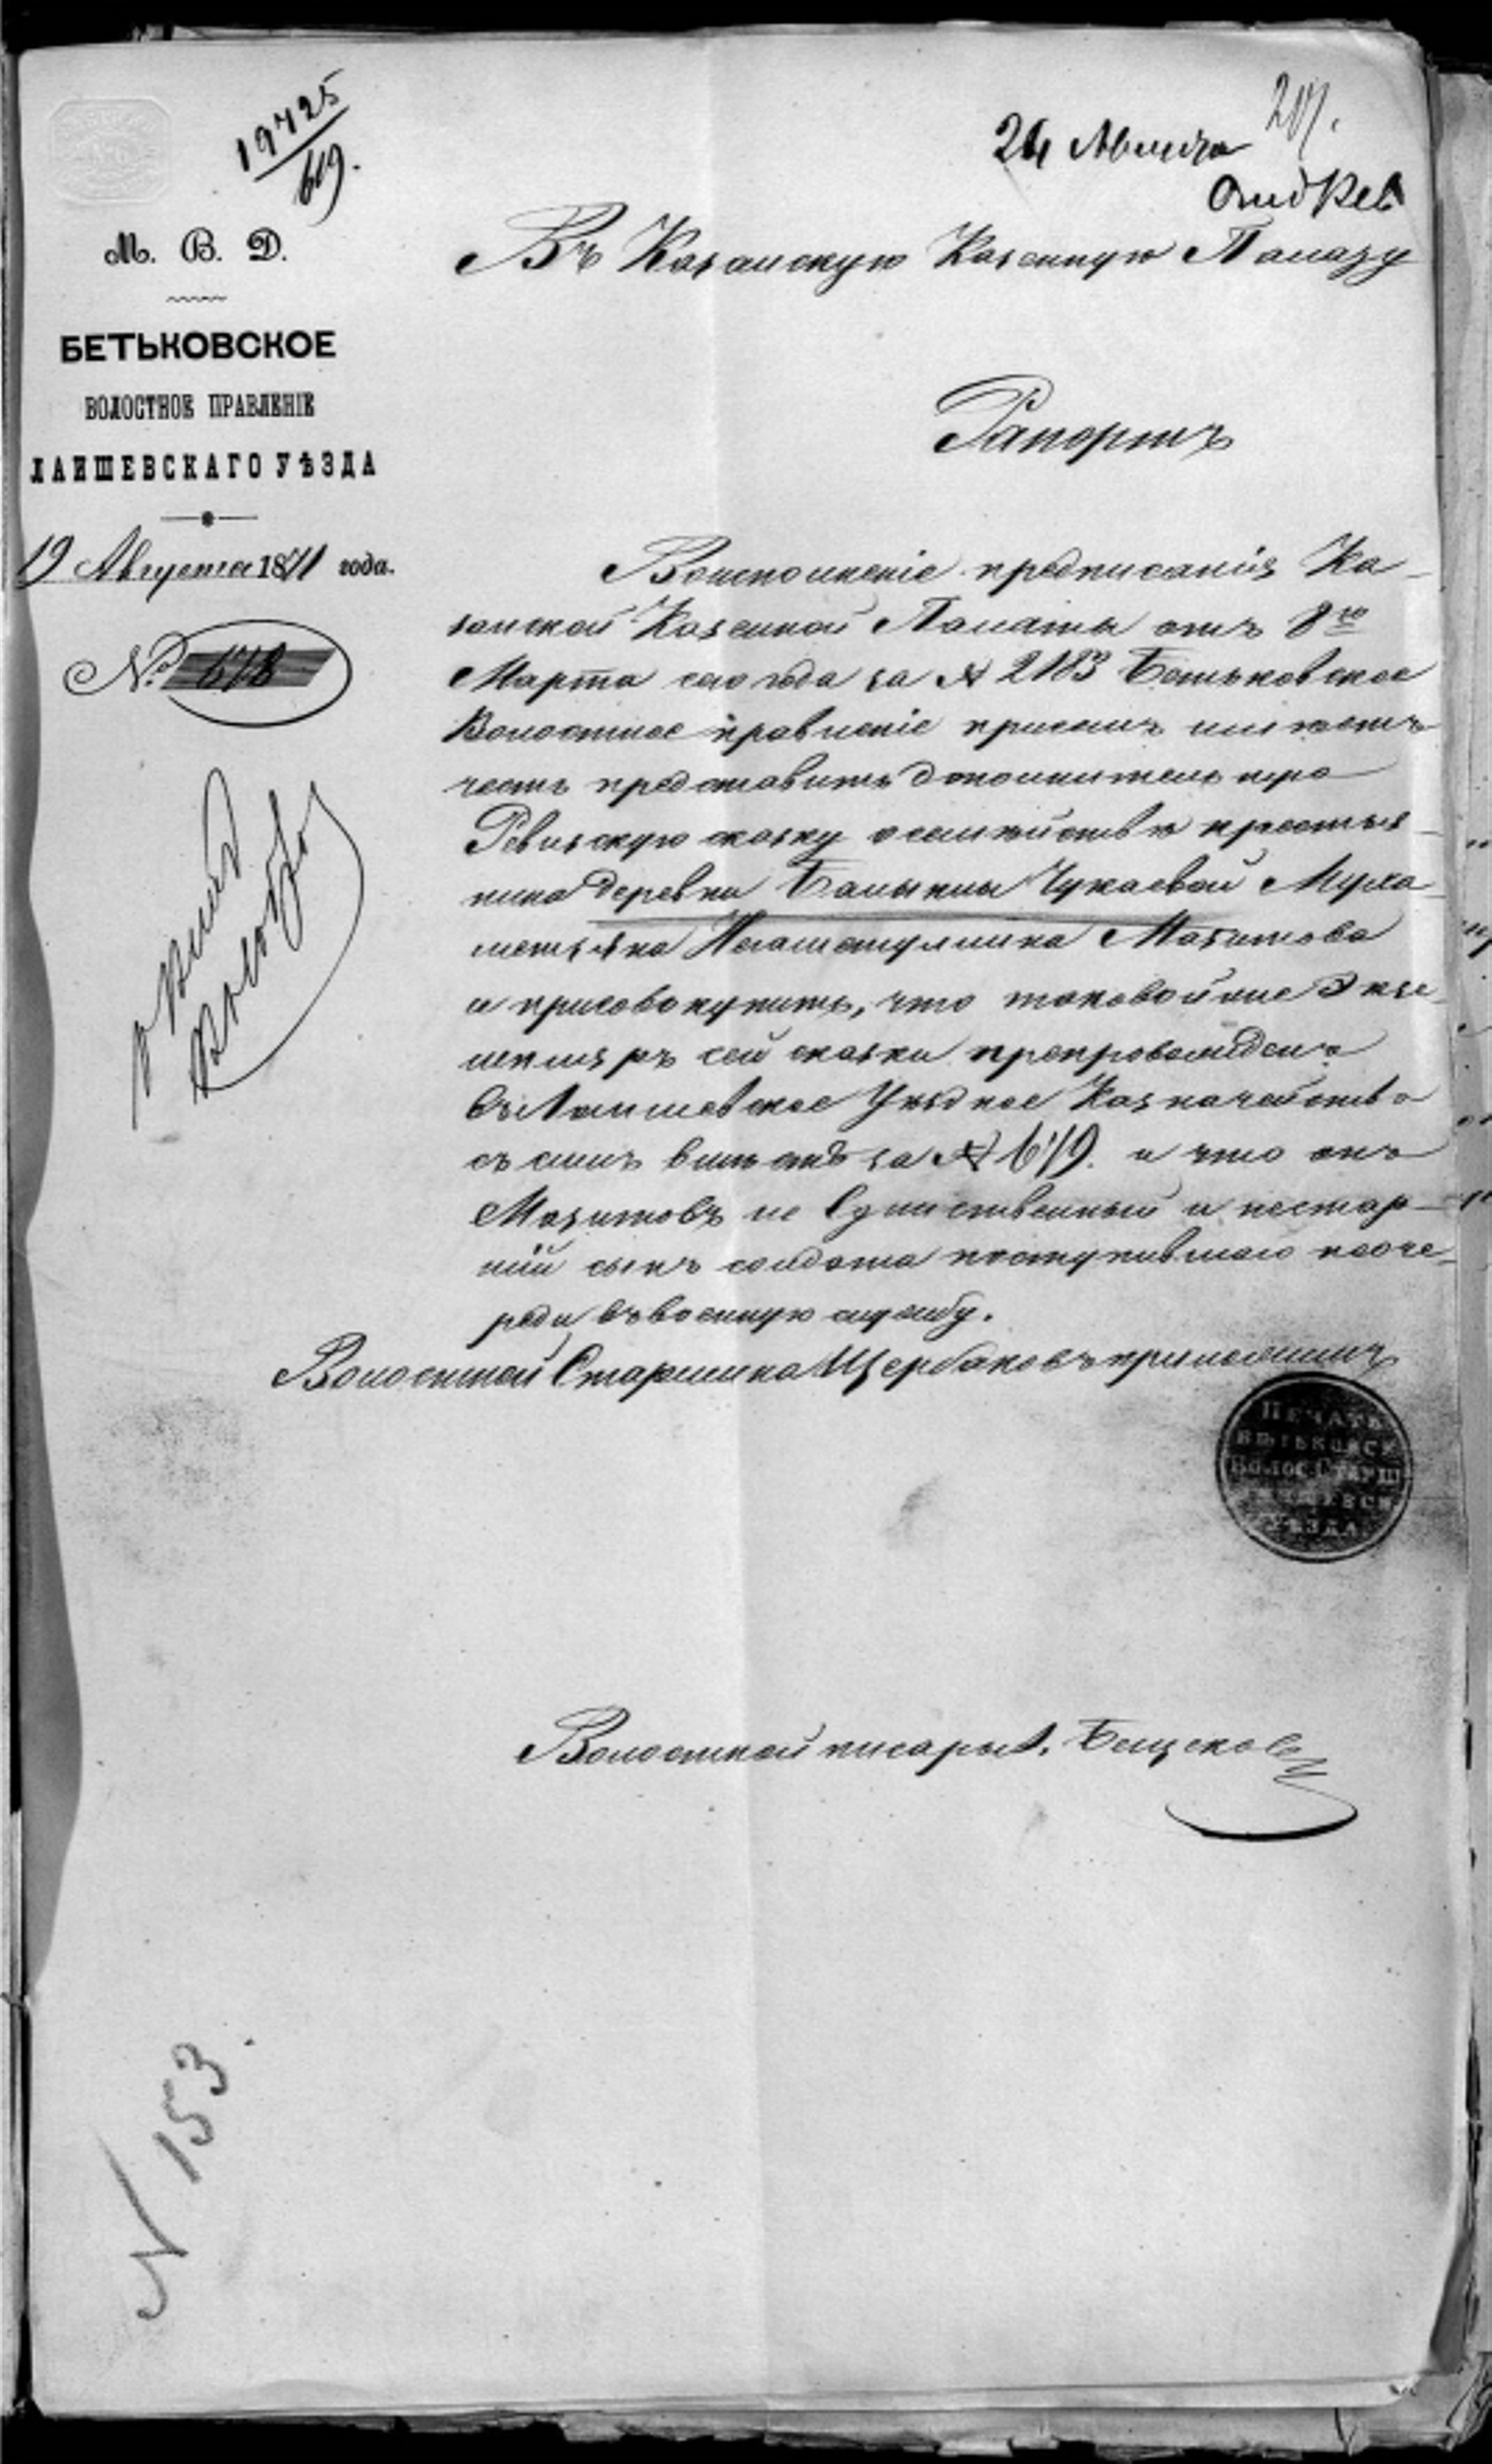 19725
619.
207.
24 Августа
М. В. Д.
Въ Казанскую Казенную Палату
БЕТЬКОВСКОЕ
ВОЛОСТНОЕ ПРАВЛЕНІЕ
ЛАИШЕВСКАГО УѢЗДА
19 Августа 1871 года.
№ 678
Рапортъ
Воисполненіе предписанія Ка-
занской Казенной Палаты отъ 8го
Марта сего года за № 2183 Бетьковское
Волостное правленіе присемъ имѣетъ
честь представить дополнительную
Ревизскую сказку о семѣйствѣ крестья-
нина деревни Балыклы Чукаевой Муха-
метзяна Мазитова
и присовокупить, что таковой же Экзе-
мпляръ сей сказки препровожденъ
въ Лаишевское Уѣздное Казначейство
съ симъ вмѣстѣ за № 679. и что онъ
Мазитовъ не Единственный и нестар-
шій сынъ солдата поступившаго пооче-
реди въ военную службу.
Волостной Старшина Щербаковъ приложилъ
ПЕЧАТЬ
БЕТЬКОВСК
ВОЛОС. СТАРШ
ЛАИШЕВСК
УѢЗДА
Волостной писарь А.
N 153.